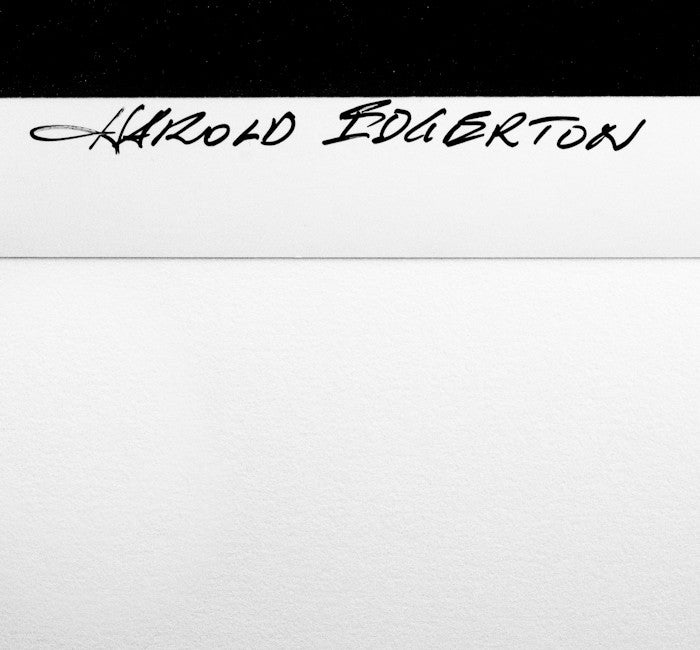 HAROLD EDGERTON